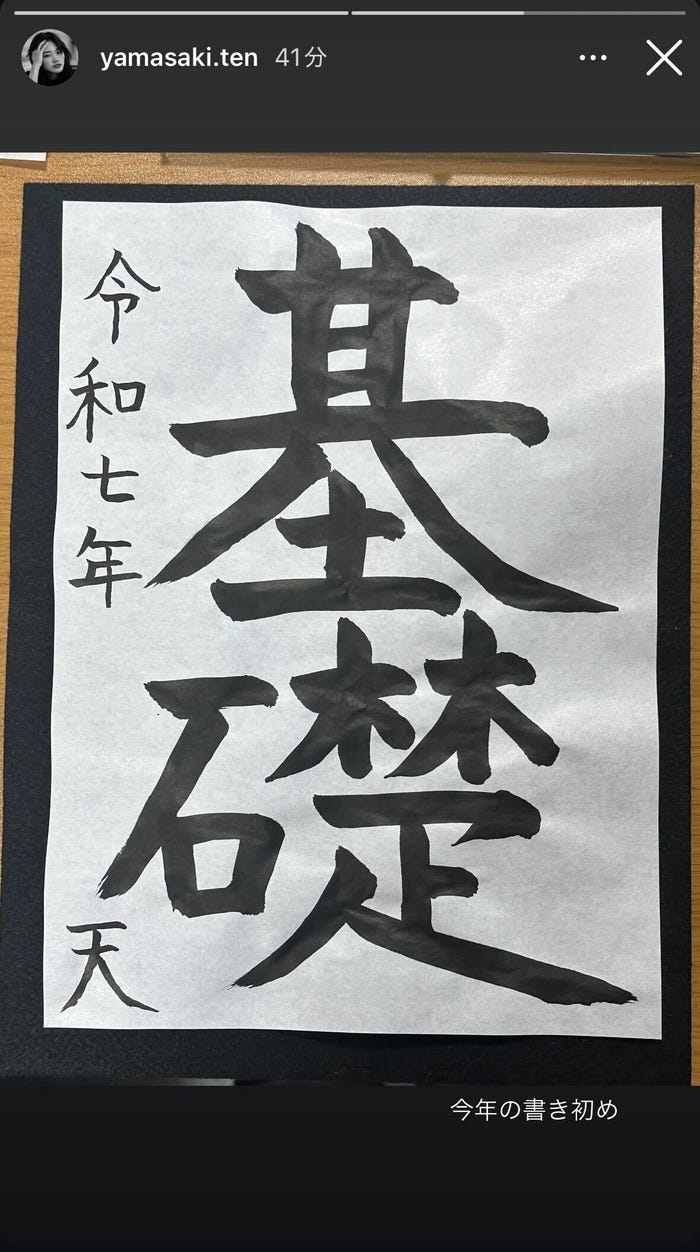 yamasaki.ten 41分
基礎
令和七年
天
今年の書き初め